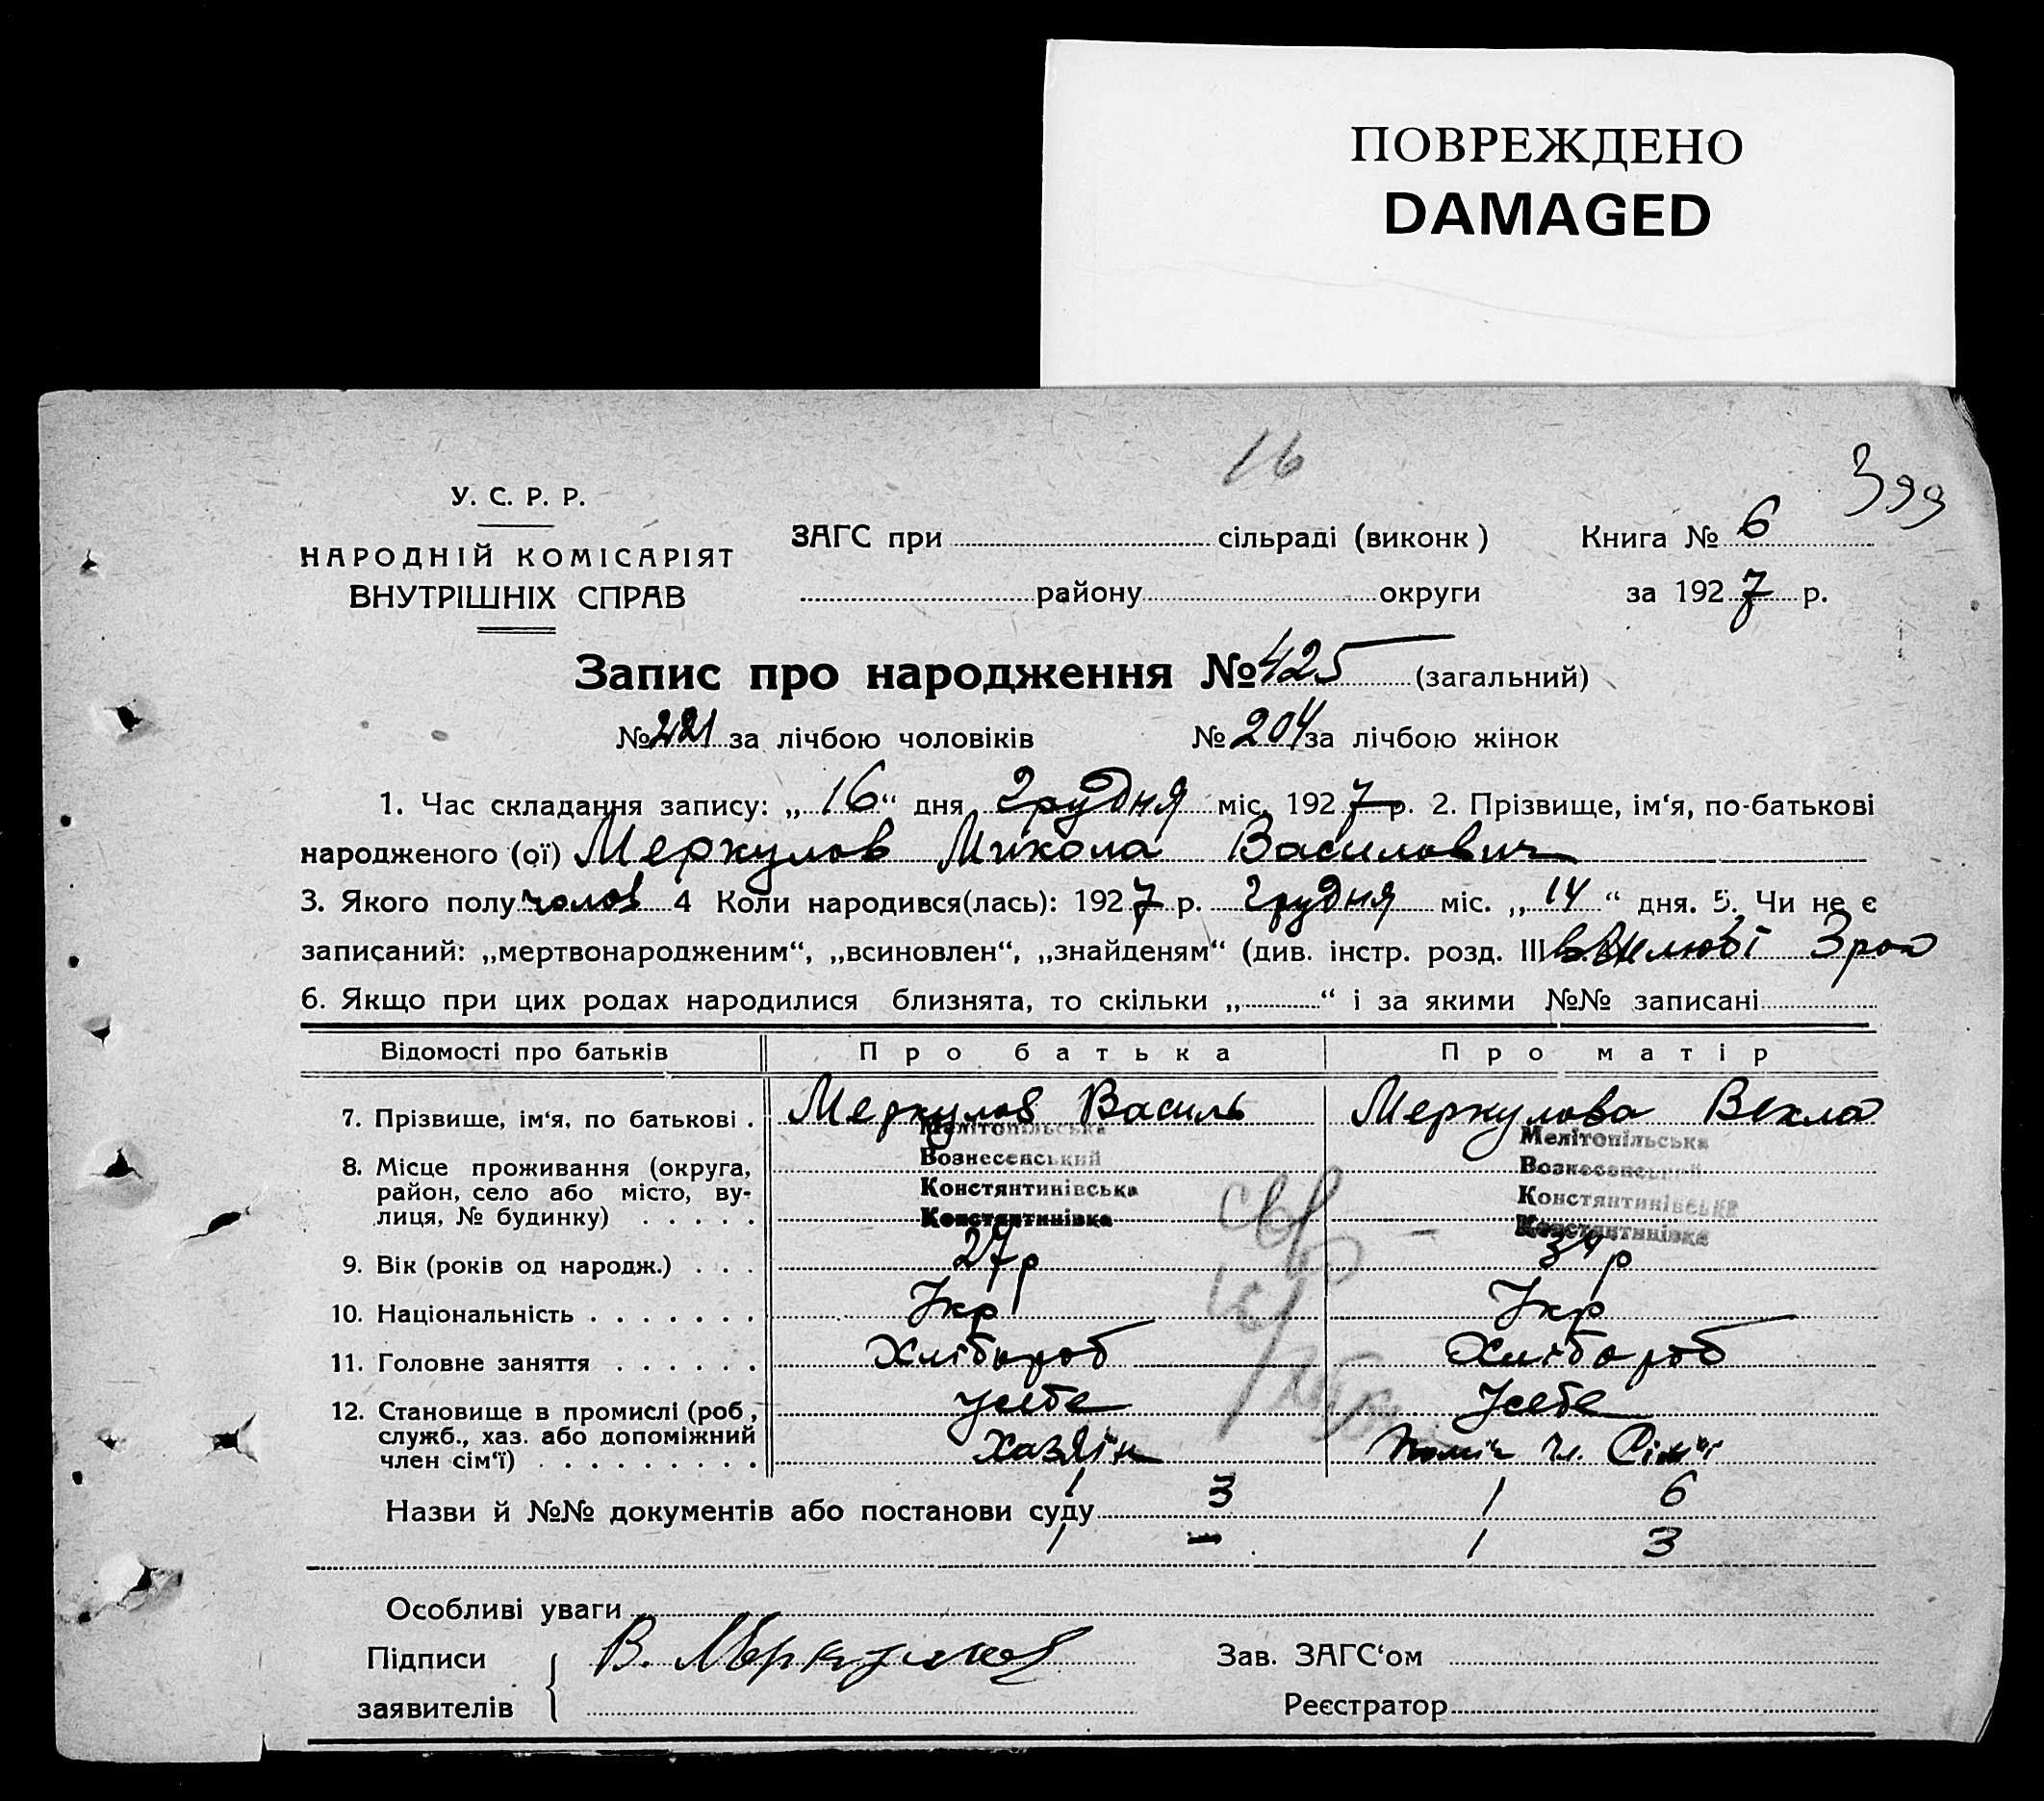 ПОВРЕЖДЕНО
DAMAGED
16
399
У. С. Р. Р.
НАРОДНІЙ КОМІСАРІЯТ
ВНУТРІШНІХ СПРАВ
ЗАГС при сільраді (виконк)
Книга № 6
району округи
за 1927 р.
Запис про народження № 425 (загальний)
№ 221 за лічбою чоловіків № 204 за лічбою жінок
1. Час складання запису: „16“ дня грудня міс. 1927 р. 2. Прізвище, ім‘я, по-батькові
народженого (ої) Меркулов Микола Василович
3. Якого полу чолов 4 Коли народився(лась): 1927 р. грудня міс. „14“ дня. 5. Чи не є
записаний: „мертвонародженим“, „всиновлен“, „знайденям“ (див. інстр. розд. III
6. Якщо при цих родах народилися близнята, то скільки „ “ і за якими №№ записані
Відомості про батьків Про батька Про матір
7. Прізвище, ім‘я, по батькові . Меркулов Василь Меркулова Векла
Мелітопільська Мелітопільська
8. Місце проживання (округа, Вознесенський Вознесенський
район, село або місто, ву- Констянтинівська Констянтинівська
лиця, № будинку) . . . . . Констянтинівка Констянтинівка
9. Вік (років од народж.) . . . 27 р 34 р
10. Національність . . . . . . . Укр Укр
11. Головне заняття . . . . . . Хлібороб Хлібороб
12. Становище в промислі (роб, усебе Усебе
служб., хаз. або допоміжний
член сім‘ї) . . . . . . . . . Хазяїн поміч чл. Сім'ї
1 3 1 6
Назви й №№ документів або постанови суду
1 — 1 3
Особливі уваги
Підписи В. Меркулов Зав. ЗАГС‘ом
заявителів Реєстратор